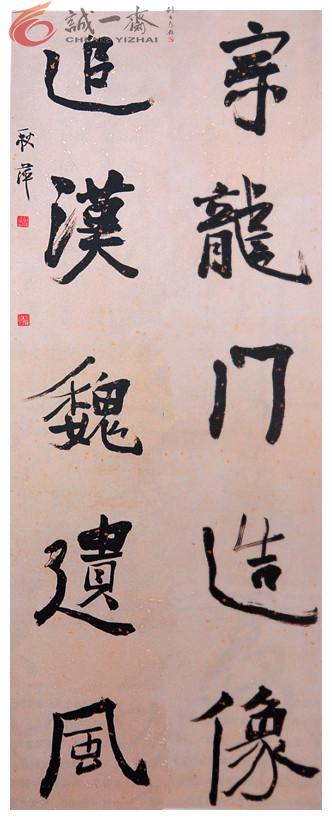 宗龍门造像
追漢魏遺風
秋萍
誠一齋
CHENG YIZHAI